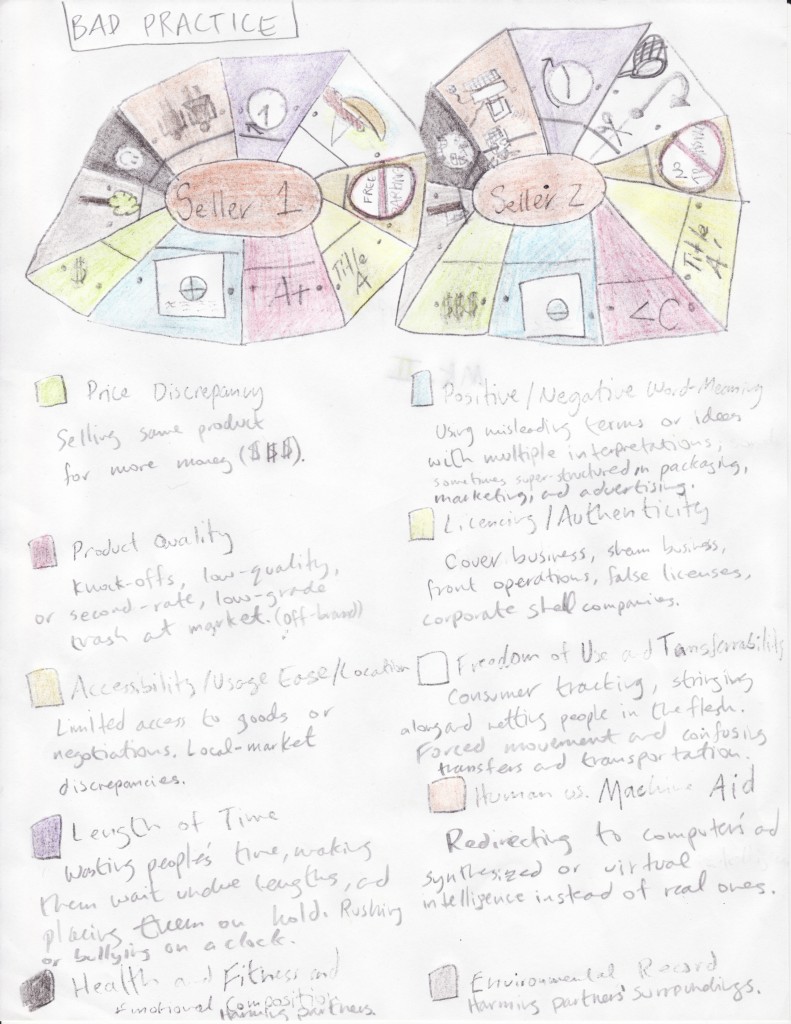 BAD PRACTICE
1
FREE
PARKING
Seller 1
Title
A
A+
$
Seller 2
Title
A.
<C
$$$
MK II
Price Discrepancy
Selling same product
for more money ($$$).
Product Quality
Knock-offs, low-quality,
or second-rate, low-grade
trash at market. (off-brand)
Accessibility/Usage Ease/Location
Limited access to goods or
negotiations. Local-market
discrepancies.
Length of Time
Wasting people's time, making
them wait undue lengths, and
placing them on hold. Rushing
or bullying on a clock.
Health and Fitness and
Emotional Composition
Harming partners.
Positive/Negative Word-Meaning
Using misleading terms or ideas
with multiple interpretations,
sometimes super-structured in packaging,
marketing, and advertising.
Licencing/Authenticity
Cover business, sham business,
front operations, false licenses,
corporate shell companies.
Freedom of Use and Transferrability
Consumer tracking, stringing
along and netting people in the flesh.
Forced movement and confusing
transfers and transportation.
Human vs. Machine Aid
Redirecting to computers and
synthesized or virtual
intelligence instead of real ones.
Environmental Record
Harming partners' surroundings.